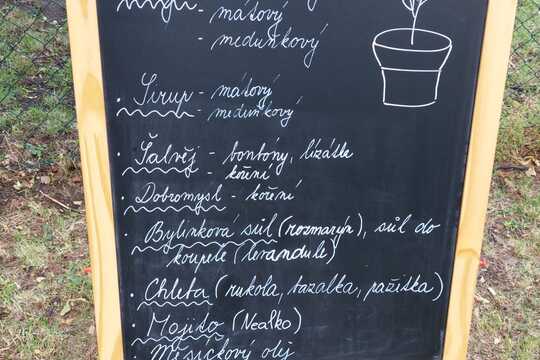 - mátový
- medunkový
· Sirup - mátový
- medunkový
· Šalvěj - bontóny, lízátka
- koření
· Dobromysl - koření
· Bylinková sůl (rozmarýn), sůl do
koupele (levandule)
· Chleta (rukola, bazalka, pažitka)
· Mojito (Nealko)
Měsíčkový olej